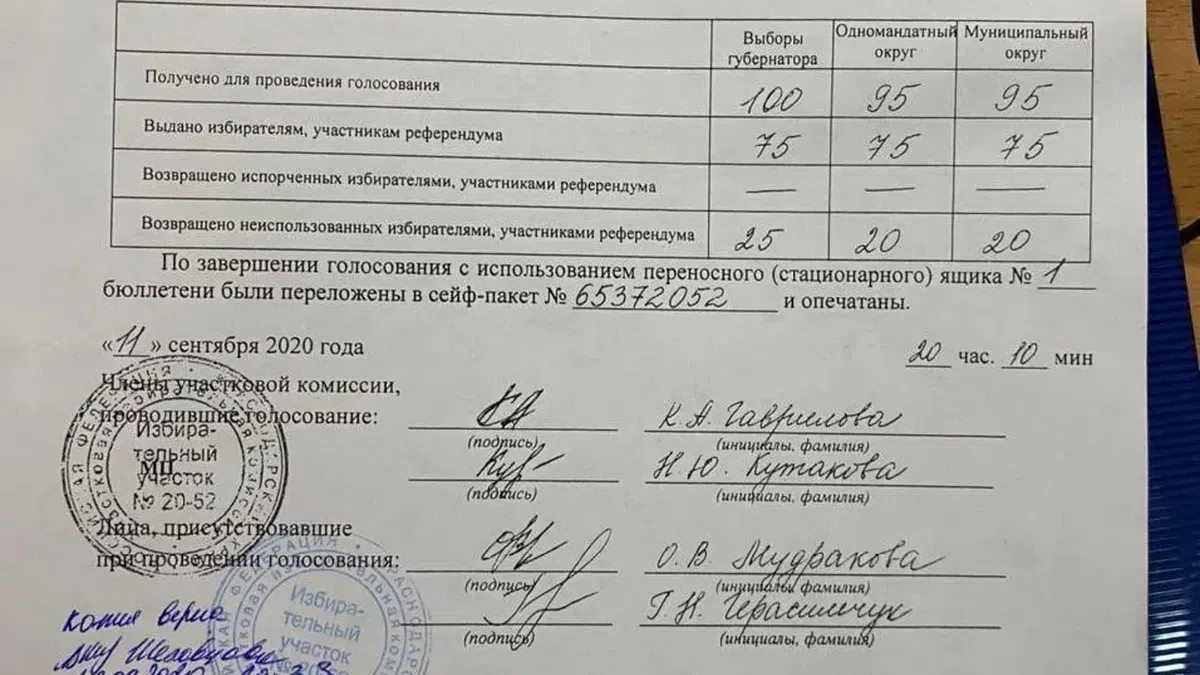 Выборы губернатора
Одномандатный округ
Муниципальный округ
Получено для проведения голосования 100 95 95
Выдано избирателям, участникам референдума 75 75 75
Возвращено испорченных избирателями, участниками референдума — — —
Возвращено неиспользованных избирателями, участниками референдума 25 20 20
По завершении голосования с использованием переносного (стационарного) ящика № 1
бюллетени были переложены в сейф-пакет № 65372052 и опечатаны.
«11» сентября 2020 года 20 час. 10 мин
Члены участковой комиссии,
проводившие голосование: К.А. Гаврилова
(подпись) (инициалы, фамилия)
Н.Ю. Кутакова
(подпись) (инициалы, фамилия)
МП
Избира-
тельный
участок
№ 20-52
Лица, присутствовавшие
при проведении голосования: О.В Мудракова
(подпись) (инициалы, фамилия)
Г.Н. Герасимчук
(подпись) (инициалы, фамилия)
Избира-
тельный
участок
копия верна